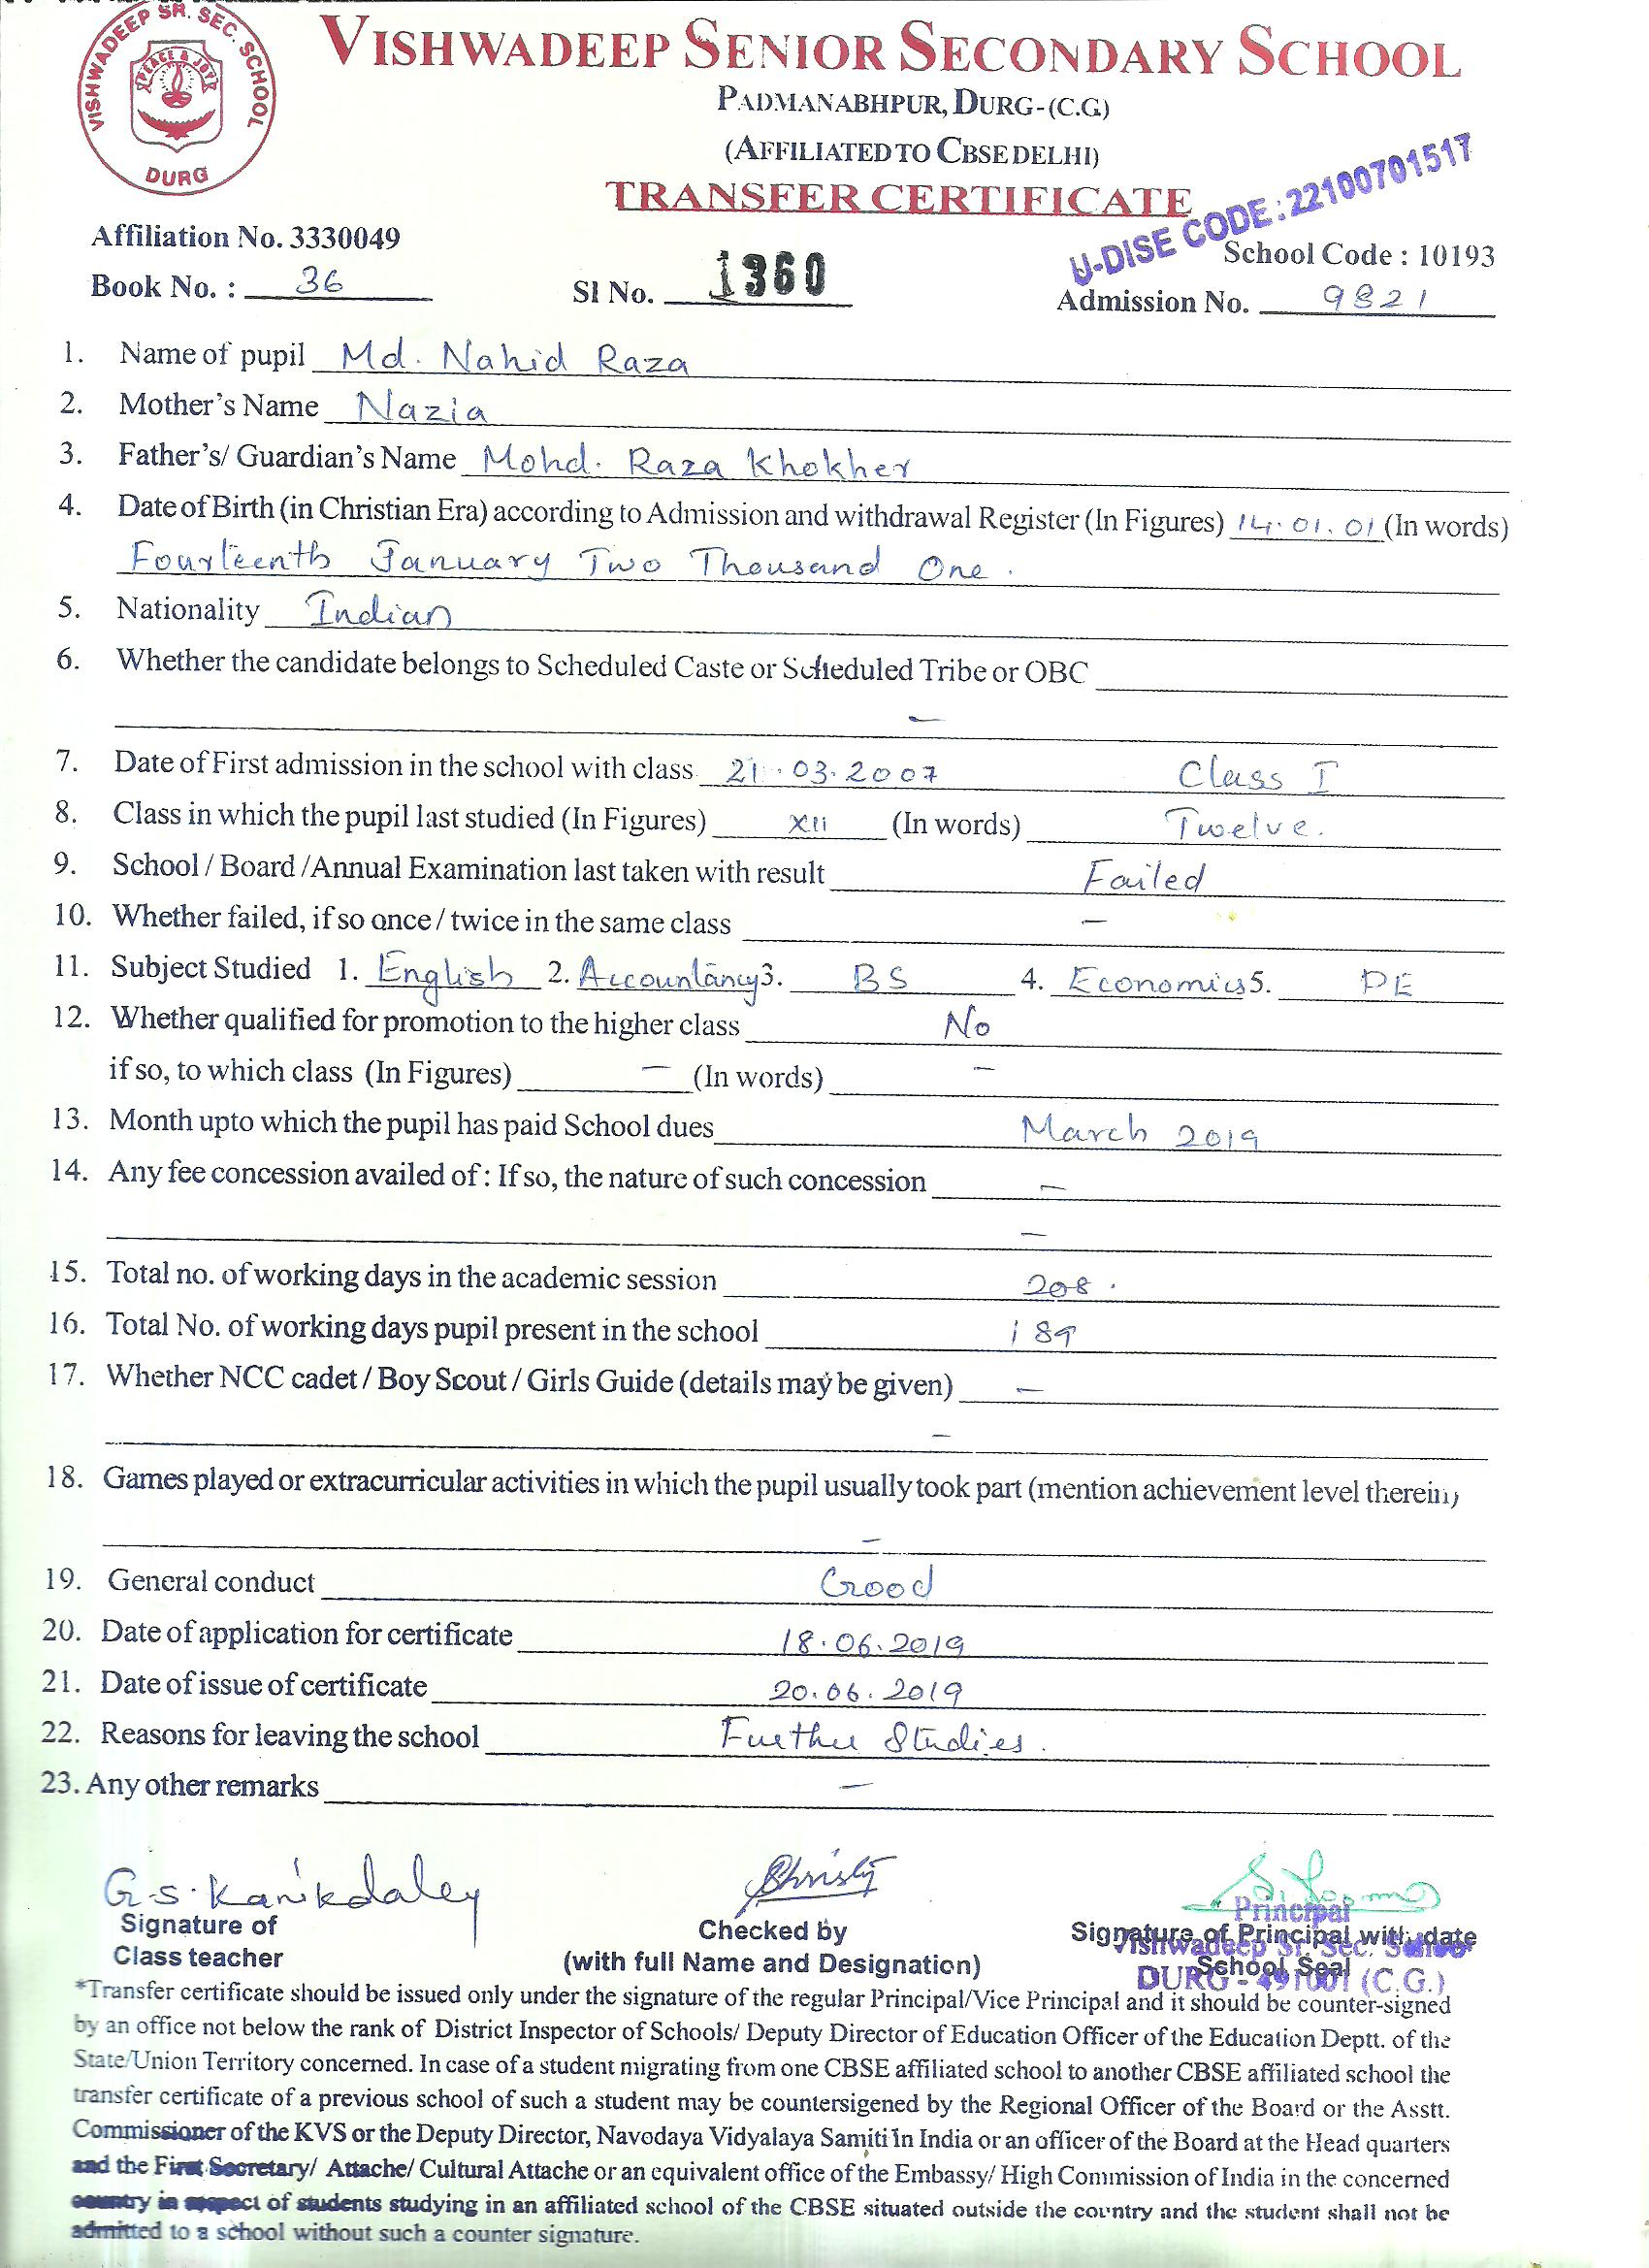 VISHWADEEP SR. SEC. SCHOOL
PEACE & JOY
DURG
VISHWADEEP SENIOR SECONDARY SCHOOL
PADMANABHPUR, DURG-(C.G.)
(AFFILIATED TO CBSE DELHI)
TRANSFER CERTIFICATE
U-DISE CODE : 22100701517
Affiliation No. 3330049
School Code : 10193
Book No. : 36 Sl No. 1360 Admission No. 9821
1. Name of pupil Md. Nahid Raza
2. Mother's Name Nazia
3. Father's/ Guardian's Name Mohd. Raza Khokher
4. Date of Birth (in Christian Era) according to Admission and withdrawal Register (In Figures) 14.01.01 (In words)
Fourteenth January Two Thousand One.
5. Nationality Indian
6. Whether the candidate belongs to Scheduled Caste or Scheduled Tribe or OBC
–
7. Date of First admission in the school with class 21.03.2007 Class I
8. Class in which the pupil last studied (In Figures) XII (In words) Twelve.
9. School / Board /Annual Examination last taken with result Failed
10. Whether failed, if so once / twice in the same class –
11. Subject Studied 1. English 2. Accountancy 3. BS 4. Economics 5. PE
12. Whether qualified for promotion to the higher class No
if so, to which class (In Figures) – (In words) –
13. Month upto which the pupil has paid School dues March 2019
14. Any fee concession availed of : If so, the nature of such concession –
–
15. Total no. of working days in the academic session 208.
16. Total No. of working days pupil present in the school 189
17. Whether NCC cadet / Boy Scout / Girls Guide (details may be given) –
–
18. Games played or extracurricular activities in which the pupil usually took part (mention achievement level therein)
–
19. General conduct Good
20. Date of application for certificate 18.06.2019
21. Date of issue of certificate 20.06.2019
22. Reasons for leaving the school Further Studies.
23. Any other remarks –
G.S. Kanikdaley
Christy
Signature of
Class teacher
Checked by
(with full Name and Designation)
Principal
Signature of Principal with date
Vishwadeep Sr. Sec. School
School Seal
DURG - 491001 (C.G.)
*Transfer certificate should be issued only under the signature of the regular Principal/Vice Principal and it should be counter-signed
by an office not below the rank of District Inspector of Schools/ Deputy Director of Education Officer of the Education Deptt. of the
State/Union Territory concerned. In case of a student migrating from one CBSE affiliated school to another CBSE affiliated school the
transfer certificate of a previous school of such a student may be countersigned by the Regional Officer of the Board or the Asstt.
Commissioner of the KVS or the Deputy Director, Navodaya Vidyalaya Samiti in India or an officer of the Board at the Head quarters
and the First Secretary/ Attache/ Cultural Attache or an equivalent office of the Embassy/ High Commission of India in the concerned
country in respect of students studying in an affiliated school of the CBSE situated outside the country and the student shall not be
admitted to a school without such a counter signature.